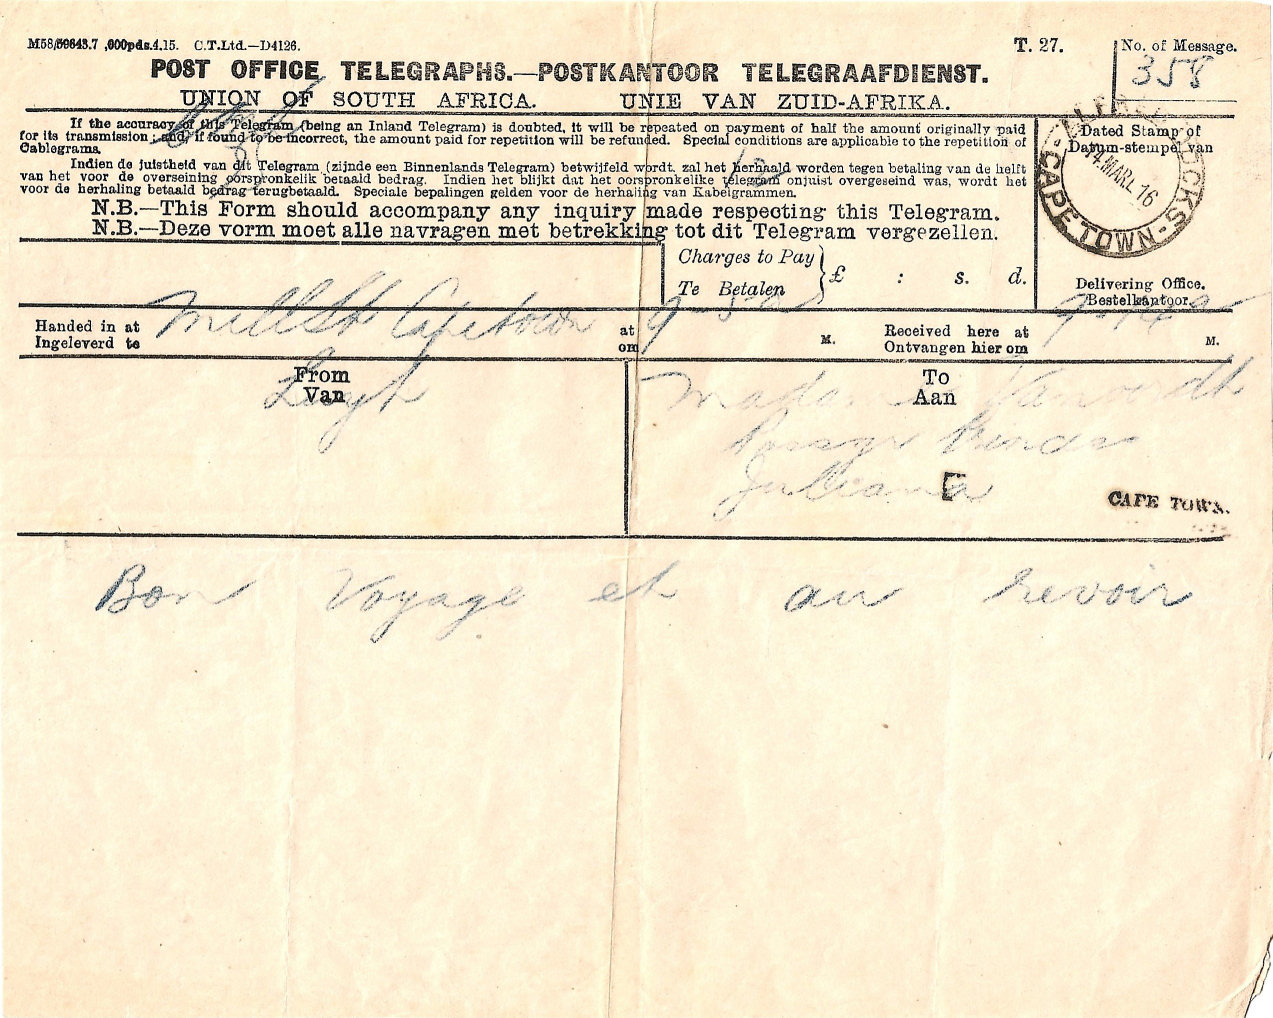 M58/59643.7 ,000pds.4.15. C.T.Ltd.—D4126.
T. 27.
No. of Message.
358
POST OFFICE TELEGRAPHS.—POSTKANTOOR TELEGRAAFDIENST.
UNION OF SOUTH AFRICA. UNIE VAN ZUID-AFRIKA.
If the accuracy of this Telegram (being an Inland Telegram) is doubted, it will be repeated on payment of half the amount originally paid
for its transmission ; and if found to be incorrect, the amount paid for repetition will be refunded. Special conditions are applicable to the repetition of
Cablegrams.
Indien de juistheid van dit Telegram (zijnde een Binnenlands Telegram) betwijfeld wordt, zal het herhaald worden tegen betaling van de helft
van het voor de overseining oorspronkelik betaald bedrag. Indien het blijkt dat het oorspronkelike telegram onjuist overgeseind was, wordt het
voor de herhaling betaald bedrag terugbetaald. Speciale bepalingen gelden voor de herhaling van Kabelgrammen.
N.B.—This Form should accompany any inquiry made respecting this Telegram.
N.B.—Deze vorm moet alle navragen met betrekking tot dit Telegram vergezellen.
Dated Stamp of
Datum-stempel van
DOCKS
-CAPE-TOWN-
14 MAR 16
Delivering Office.
Bestelkantoor.
Charges to Pay
Te Betalen
£ : s. d.
Handed in at
Ingeleverd te
Mill St Capetown
at
om
9
M.
Received here at
Ontvangen hier om
9
M.
From
Van
To
Aan
Madame
Juliana
CAPE TOWN.
Bon Voyage et au revoir